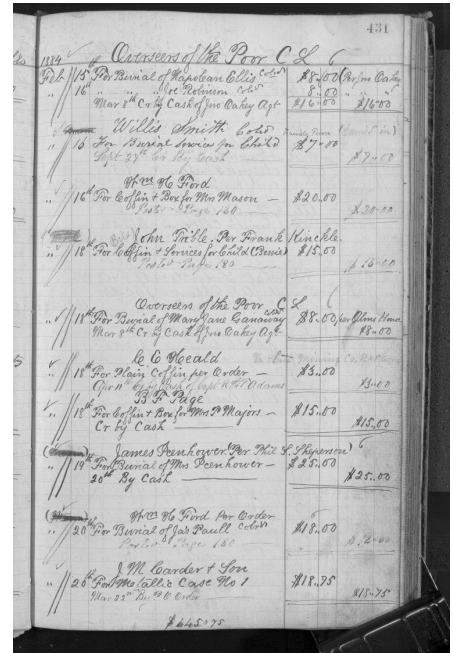 431
1884 Overseers of the Poor C L
Feb 15 For Burial of Napolean Ellis Cold $8.00 (Per Jno Oakey
" 16th " " " Joe Robinson Cold 8.00 " " "
Mar 8th Cr by Cash of Jno Oakey Agt $16.00 $16.00
Willis Smith Cold
" 15 For Burial Services for Child $7.00
Sept 27th Cr By Cash $7.00
Wm H Ford
" 16th For Coffin & Box for Mrs Mason — $20.00
Posted Page 160 $20.00
John Trible. Per Frank Kinckle.
" 18th For Coffin & Services for Child (Bessie) $15.00
Posted Page 180 $15.00
Overseers of the Poor C L
" 18th For Burial of Mary Jane Ganaway Cold $8.00 per Alms House
Mar 8th Cr by Cash of Jno Oakey Agt $8.00
C C Heald
18th For Plain Coffin per Order — $3.00
Apr 11th Cr by Cash of Capt R H Adams $3.00
B F Page
" 18th For Coffin & Box for Mrs Majors — $15.00
Cr by Cash $15.00
James Icenhower (Per Phil S. Sheperson)
" 19th For Burial of Mrs Icenhower — $25.00
20th By Cash $25.00
Wm H Ford Per Order
" 20th For Burial of Jas Paull Cold $18.00
Posted Page 160
J M Carder & Son
" 20th For Metallic Case No 1 $18.75
Mar 22nd By P O Order $18.75
$645.75